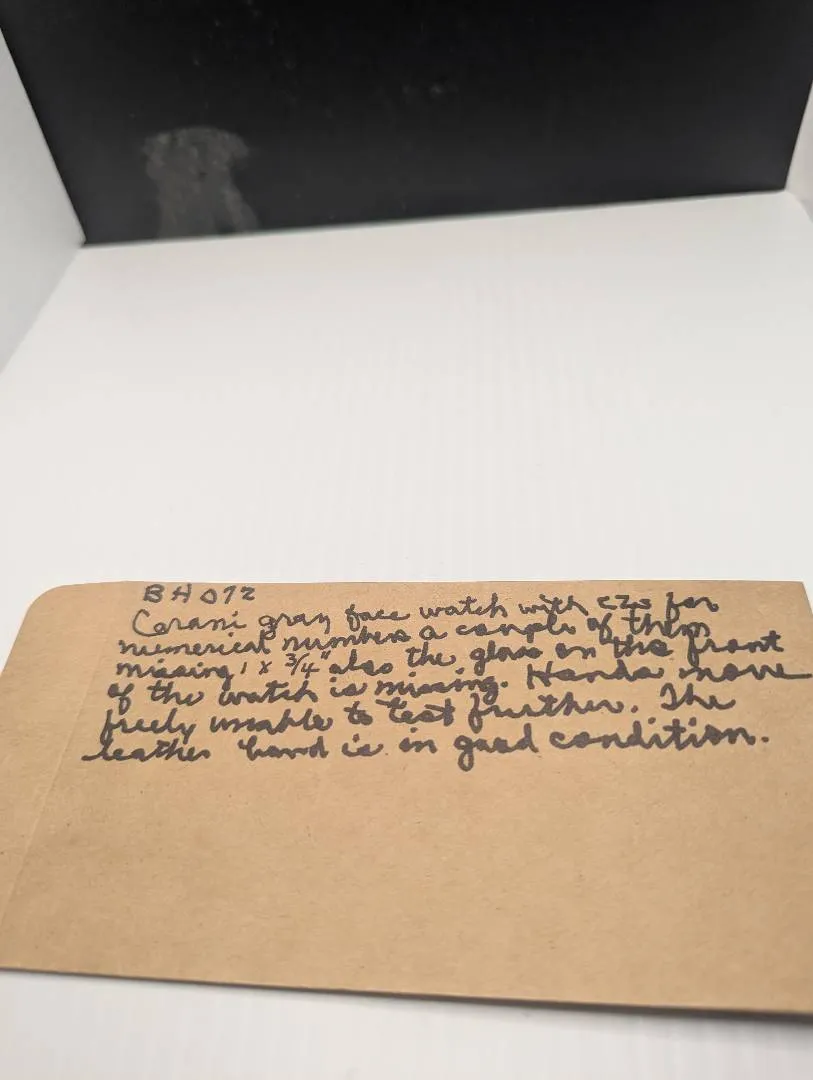 BH072
Carani gray face watch with czs for
numerical numbers a couple of them
missing, 1 x 3/4" also the glass on the front
of the watch is missing. Hands move
freely unable to test further. The
leather band is in good condition.